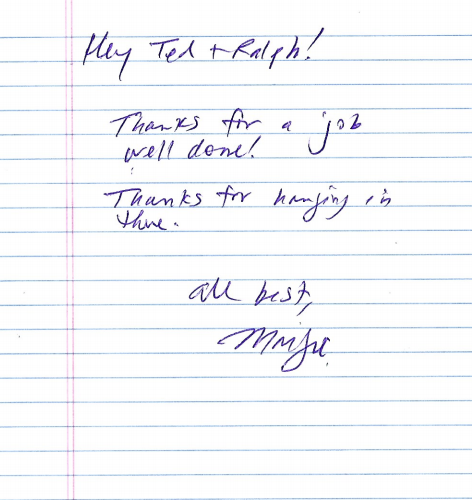 Hey Ted + Ralph!
Thanks for a job
well done!
Thanks for hanging in
there.
all best,